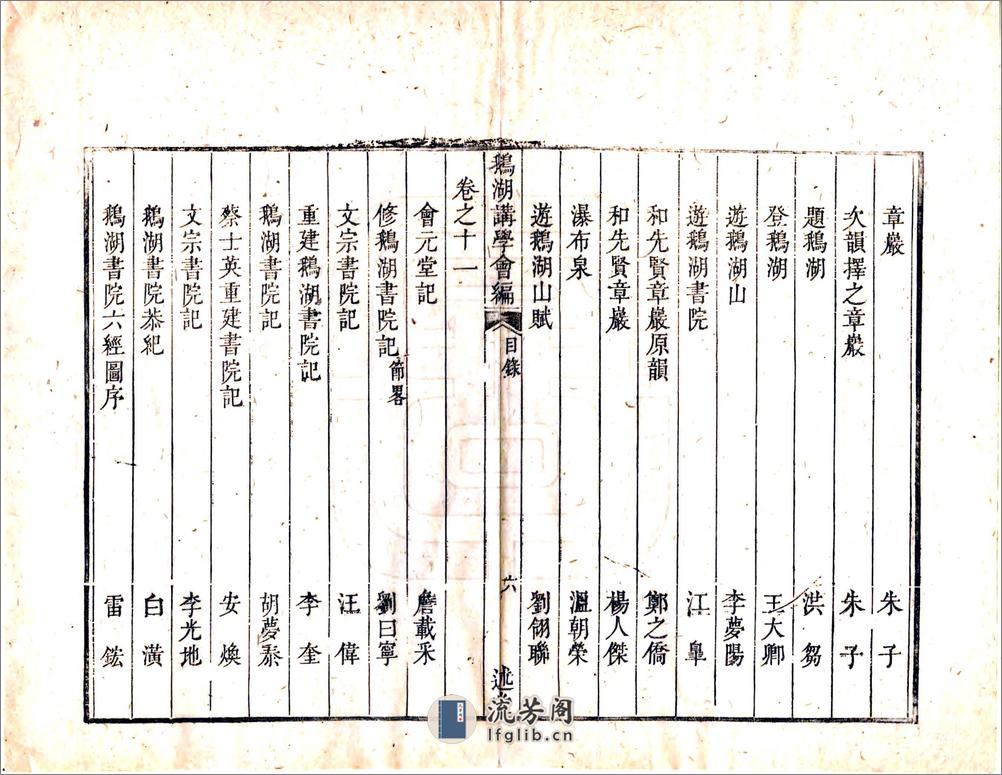 章巖 朱子
次韻擇之章巖 朱子
題鵝湖 洪芻
登鵝湖 王大卿
遊鵝湖山 李夢陽
遊鵝湖書院 江皐
和先賢章巖原韻 鄭之僑
和先賢章巖 楊人傑
瀑布泉 溫朝榮
遊鵝湖山賦 劉翎聯
鵝湖講學會編 目錄 六 述
卷之十一
會元堂記 詹載采
修鵝湖書院記節畧 劉曰寧
文宗書院記 汪偉
重建鵝湖書院記 李奎
鵝湖書院記 胡夢泰
蔡士英重建書院記 安煥
文宗書院記 李光地
鵝湖書院恭紀 白潢
鵝湖書院六經圖序 雷鋐
流芳阁
lfglib.cn